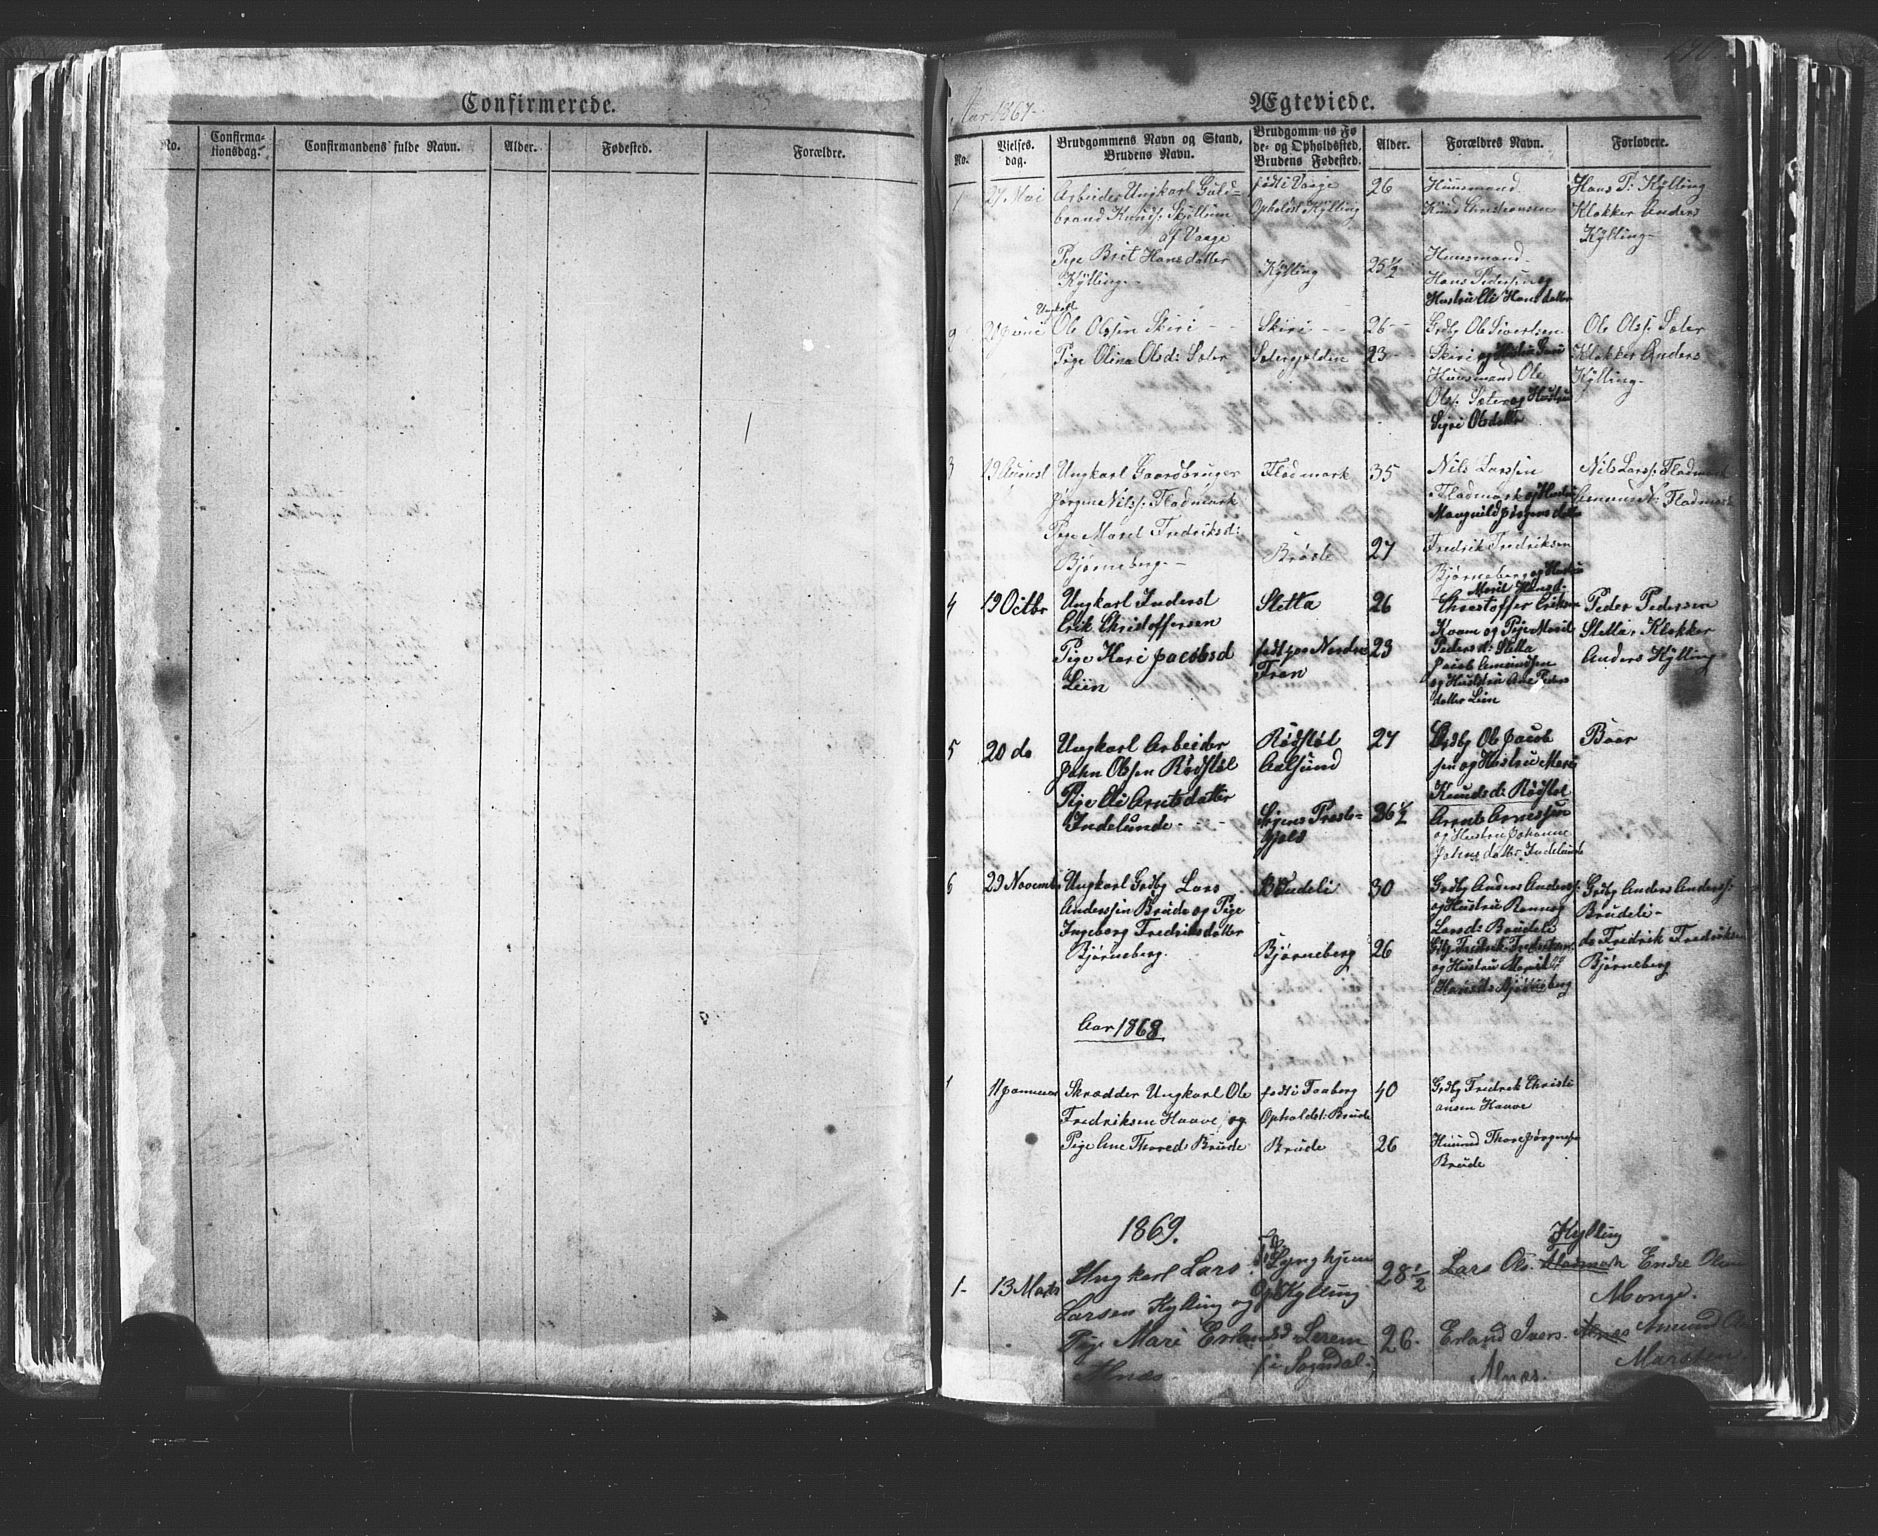 Confirmerede.
No.
Confirma-
tionsdag.
Confirmandens fulde Navn.
Alder.
Fødested.
Forældre.
Aar 1867-
Ægteviede.
No.
Vielses-
dag.
Brudgommens Navn og Stand,
Brudens Navn.
Brudgommens Fø-
de- og Opholdssted,
Brudens Fødested.
Alder.
Forældres Navn.
Forlovere.
1
27 Mai
Arbeider Ungkarl Guld-
brand Knuds: Skjellum
af Vaage
Pige Brit Hansdatter
Kÿlling-
født i Vaage
Opholdst Kÿlling
Kÿlling
26
25 1/2
Huusmand
Knud Christiansen
Huusmand
Hans Pedersen og
Hustru Eli Hansdatter
Hans P: Kÿlling
Klokker Anders
Kÿlling-
2
Ungkarl
Ole Olssen Skiri - -
Pige Olina Olsd: Sæter
Skiri - -
26 -
23 -
Grdbg Ole Sivertsen
Skiri og Hustru
Huusmand Ole
Ols: Sæter og Hustru
Sigri Olsdatter
Ole Ols: Sæter
Klokker Anders
Kÿlling-
3
19 August
Ungkarl Gaardbruger
Jørgen Nils: Fladmark
Pige Maret Fredriksd:
Bjørneberg. -
Fladmark
Brøste
35
27
Nils Larssen
Fladmark og Hustru
Fredrik Fredriksen
Bjørneberg og Hustru
Marit Hansd:
Nils Lars: Fladmark
Amund N: Fladmark
4
19 Octbr
Ungkarl Inderst
Erik Christoffersen
Pige Kari Jacobsd
Lien
Sletta
født paa Nordre
Fron
26
23
Christoffer Eriksen
Kvam og Pige Marit
Pedersd: Sletta
Jacob Amundsen
og Hustru Ane Peders
datter Lien
Peder Pedersen
Sletta, Klokker
Anders Kÿlling
5
20 do
Ungkarl Arbeider
John Olsen Rødstøl
Pige Eli Arntsdatter
Indelunde - - -
Rødstøl
Aalsund
Præste-
gjeld
27
36 1/2
Grdbg Ole Jacob
sen og Hustru Mari
Knudsd: Rødstøl
Arnt Arnessen
og Hustru Johanne
Johnsdatter Indelunde
6
29 Novembr
Ungkarl Grdbg Lars
Anderssen Brude og Pige
Ingeborg Fredriksdatter
Bjørneberg.
Brudeli
Bjørneberg
30
26
Grdbg Anders Anders:
og Hustru Rønnog
Larsd: Brudeli
Grdbg Fredrik Fredriksen
og Hustru Marit
Hansd: Bjørneberg
Grdbg Anders Anders:
Brudeli-
do Fredrik Fredriksen
Bjørneberg
Aar 1868
1
11 Januuar
Skrædder Ungkarl Ole
Fredriksen Haave, og
Pige Ane Thoresd: Brude
født i Faaberg
Opholdst: Brude
Brude
40
26
Grdbg Fredrik Christi
ansen Haave
Huusmd Thore Jørgens:
Brude
1869.
1-
13 Marts
Ungkarl Lars
Larsen Kylling og
Pige Mari Erlandsd
Alnæs.
Lyngheim
Kylling
Lerem
i Sogndal.
28 1/2
26.
Lars Ols.
Kylling
Erland Ivers.
Alnæs.
Endre Olsen
Monge.
Amund Ols
Marstein.